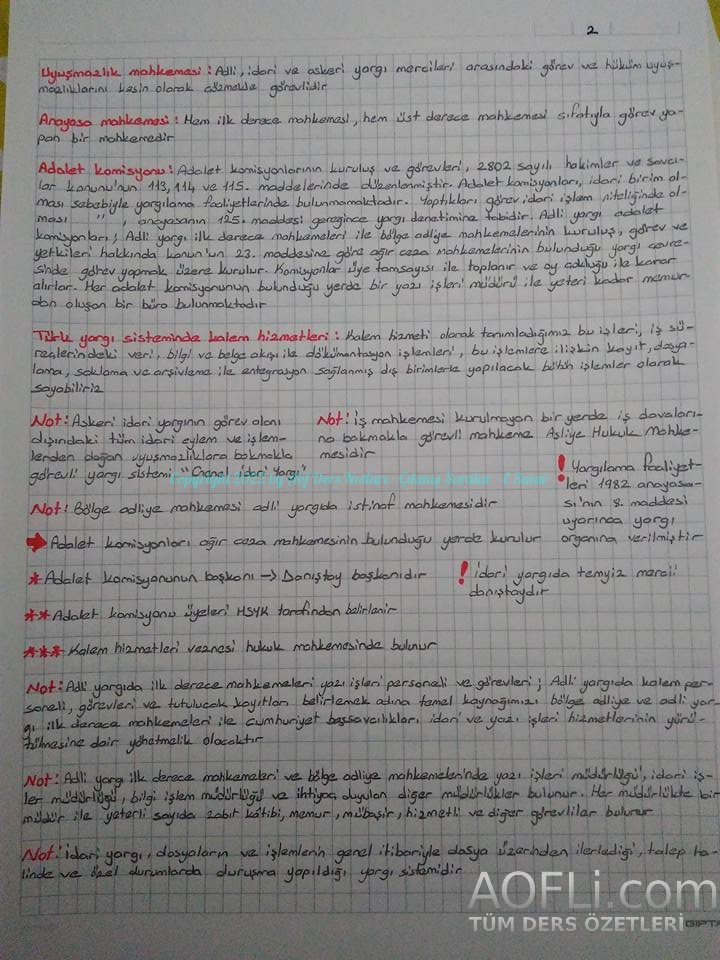 2
Uyuşmazlık mahkemesi: Adli, idari ve askeri yargı mercileri arasındaki görev ve hüküm uyuş-
mazlıklarını kesin olarak çözmekle görevlidir
Anayasa mahkemesi: Hem ilk derece mahkemesi, hem üst derece mahkemesi sıfatıyla görev ya-
pan bir mahkemedir
Adalet komisyonu: Adalet komisyonlarının kuruluş ve görevleri, 2802 sayılı hakimler ve savcı-
lar kanunu'nun 113,114 ve 115. maddelerinde düzenlenmiştir. Adalet komisyonları, idari birim ol-
ması sebebiyle yargılama faaliyetlerinde bulunmamaktadır. Yaptıkları görev idari işlem niteliğinde ol-
ması " ", anayasanın 125. maddesi gereğince yargı denetimine tabidir. Adli yargı adalet
komisyonları; Adli yargı ilk derece mahkemeleri ile bölge adliye mahkemelerinin kuruluş, görev ve
yetkileri hakkında konun'un 23. maddesine göre ağır ceza mahkemelerinin bulunduğu yargı çevre-
sinde görev yapmak üzere kurulur. Komisyonlar üye tamsayısı ile toplanır ve oy çokluğu ile karar
alırlar. Her adalet komisyonunun bulunduğu yerde bir yazı işleri müdürü ile yeteri kadar memur-
dan oluşan bir büro bulunmaktadır
Türk yargı sisteminde kalem hizmetleri: Kalem hizmeti olarak tanımladığımız bu işleri, iş sü-
reçlerindeki veri, bilgi ve belge akışı ile dökümantasyon işlemleri, bu işlemlere ilişkin kayıt, dosya-
lama, saklama ve arşivleme ile entegrasyon sağlanmış dış birimlerle yapılacak bütün işlemler olarak
sayabiliriz
Not: Askeri idari yargının görev alanı
dışındaki tüm idari eylem ve işlem-
lerden doğan uyuşmazlıklara bakmakla
görevli yargı sistemi "Genel idari Yargı"
Not: İş mahkemesi kurulmayan bir yerde iş davaları-
na bakmakla görevli mahkeme Asliye Hukuk Mahke-
mesidir
! Yargılama faaliyet-
leri 1982 anayasa-
sı'nın 9. maddesi
uyarınca yargı
organına verilmiştir
Not: Bölge adliye mahkemesi adli yargıda istinaf mahkemesidir
→ Adalet komisyonları ağır ceza mahkemesinin bulunduğu yerde kurulur
* Adalet komisyonunun başkanı → Danıştay başkanıdır
! İdari yargıda temyiz mercii
danıştaydır
** Adalet komisyonu üyeleri HSYK tarafından belirlenir
*** Kalem hizmetleri veznesi hukuk mahkemesinde bulunur
Not: Adli yargıda ilk derece mahkemeleri yazı işleri personeli ve görevleri; Adli yargıda kalem per-
soneli, görevleri ve tutulacak kayıtları belirlemek adına temel kaynağımız bölge adliye ve adli yar-
gı ilk derece mahkemeleri ile cumhuriyet başsavcılıkları idari ve yazı işleri hizmetlerinin yürü-
tülmesine dair yönetmelik olacaktır
Not: Adli yargı ilk derece mahkemeleri ve bölge adliye mahkemelerinde yazı işleri müdürlüğü, idari iş-
ler müdürlüğü, bilgi işlem müdürlüğü ve ihtiyaç duyulan diğer müdürlükler bulunur. Her müdürlükte bir
müdür ile yeterli sayıda zabıt kâtibi, memur, mübaşir, hizmetli ve diğer görevliler bulunur
Not: idari yargı, dosyaların ve işlemlerin genel itibariyle dosya üzerinden ilerlediği, talep ha-
linde ve özel durumlarda duruşma yapıldığı yargı sistemidir
AOFLi.com
TÜM DERS ÖZETLERİ
GIPTA